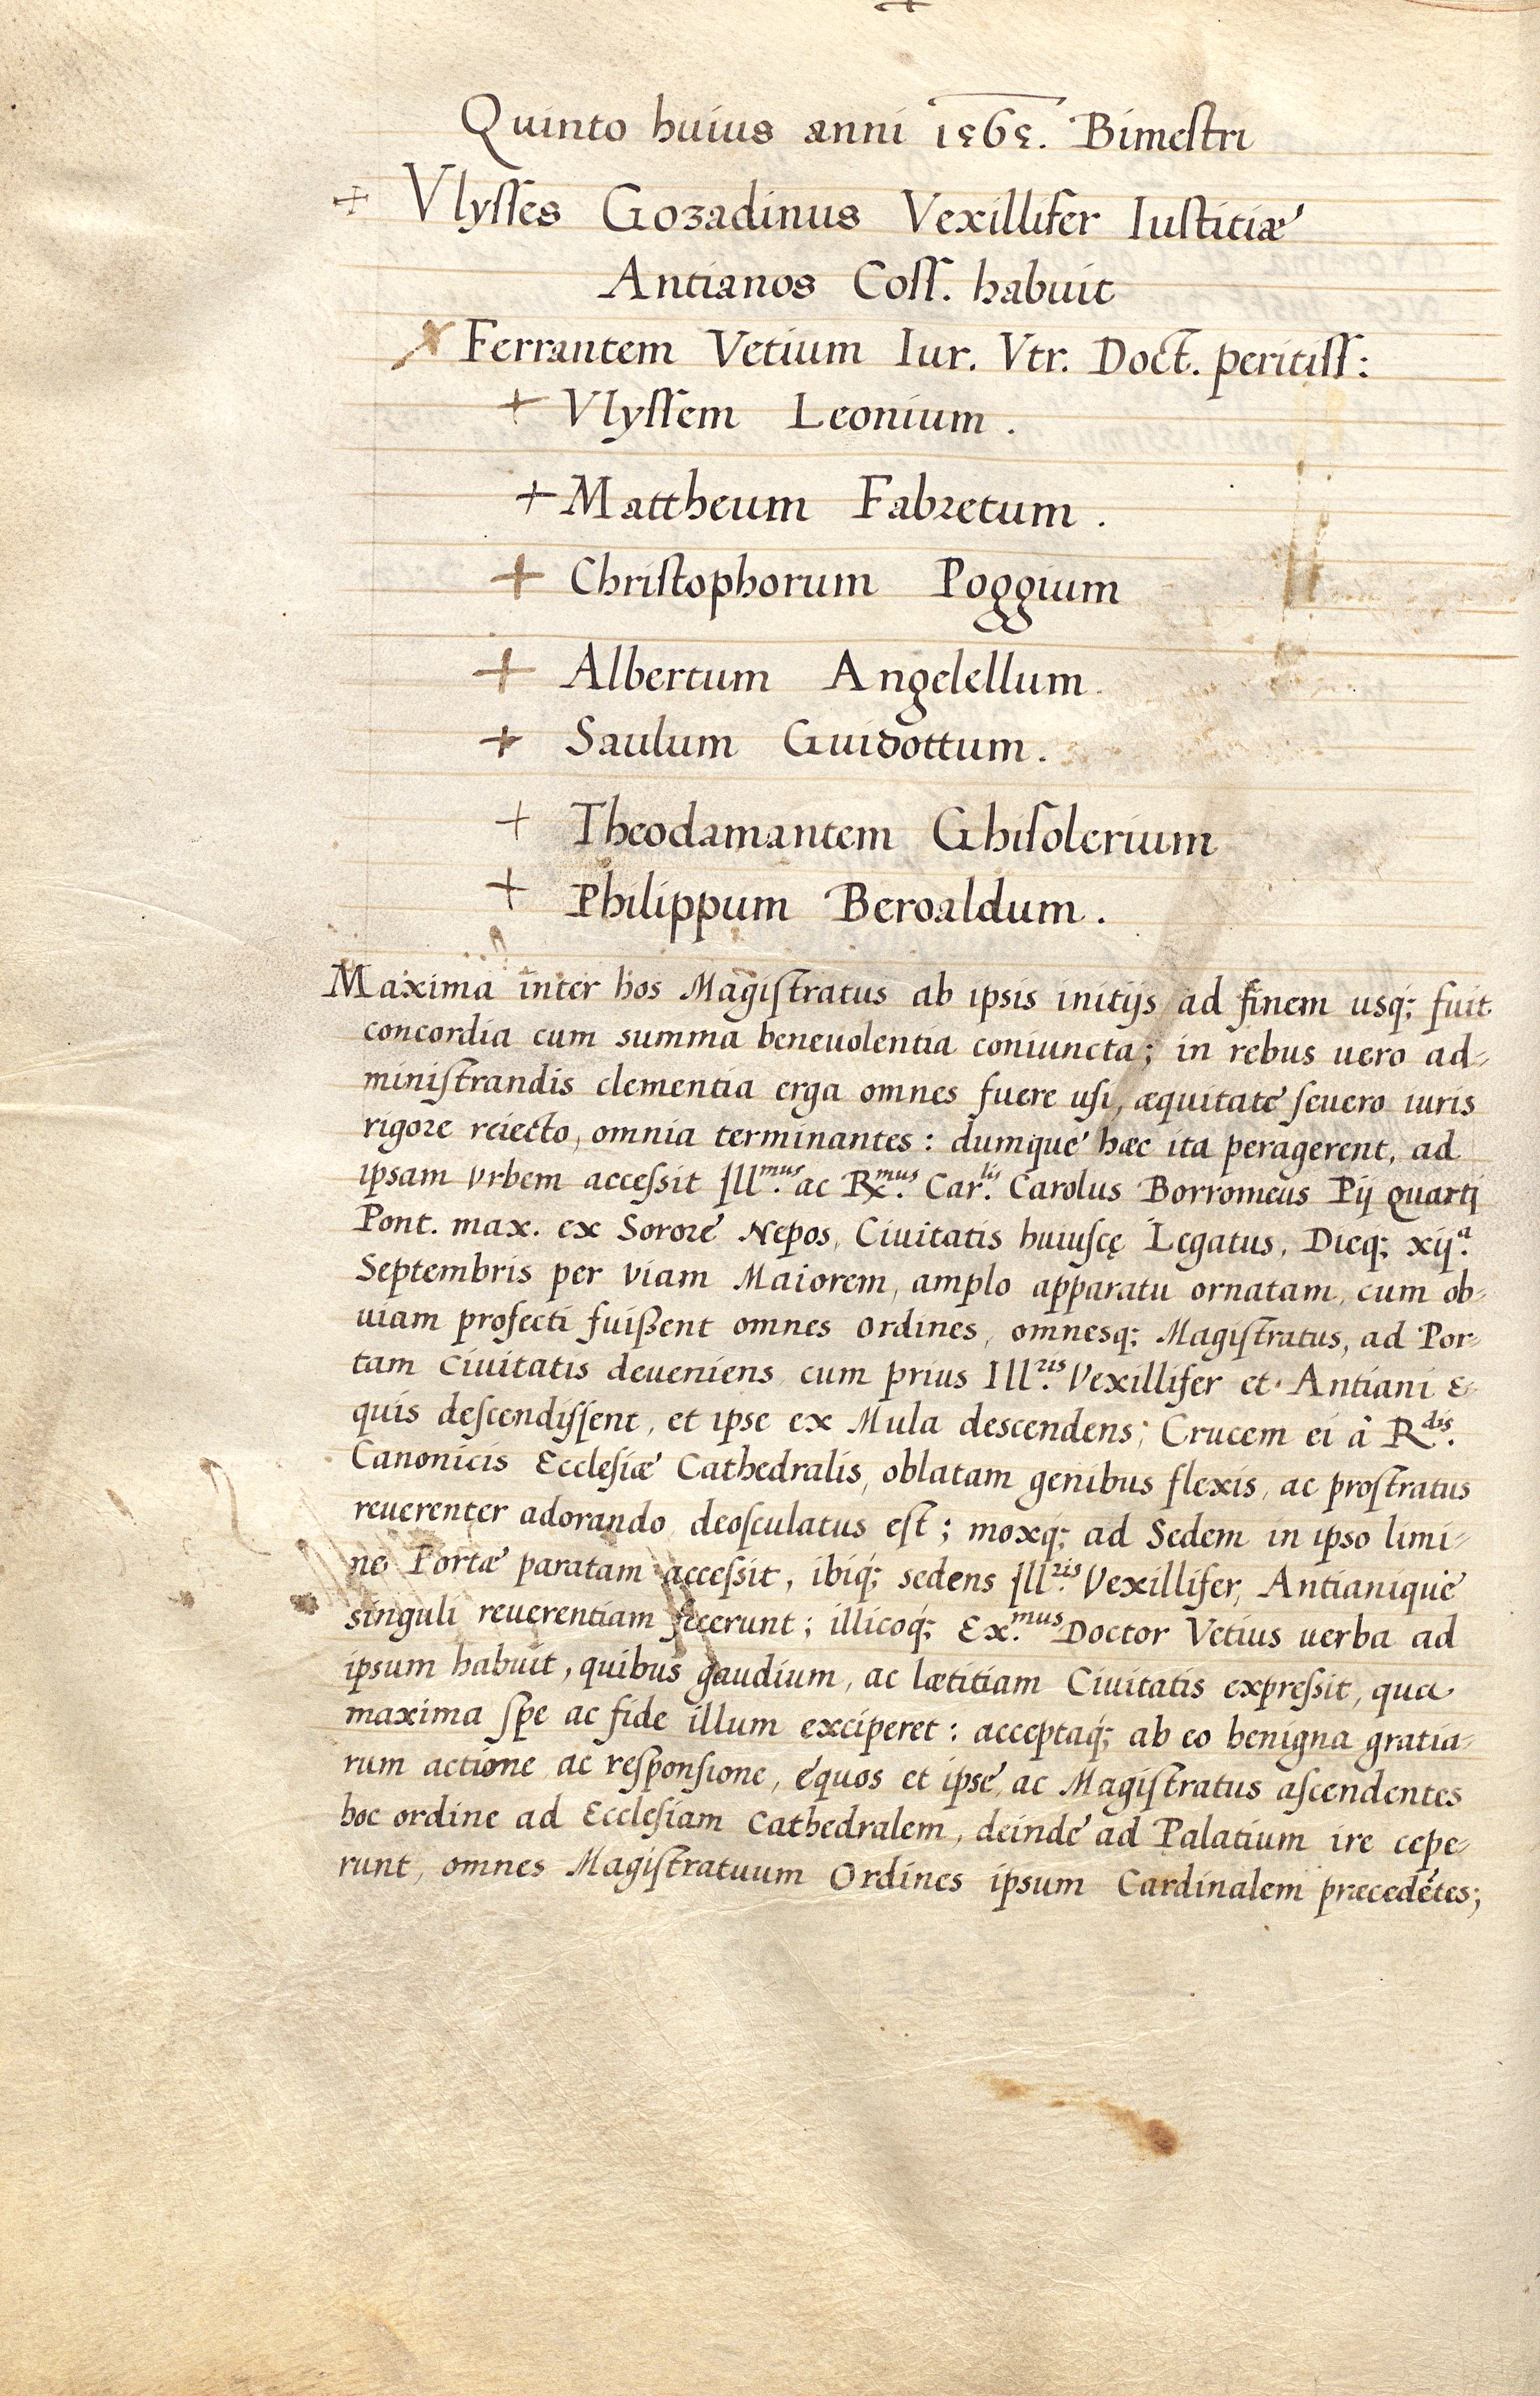 Quinto huius anni 1565. Bimestri
+ Vlysses Gozadinus Vexillifer Iustitiæ
Antianos Coss. habuit
x Ferrantem Vetium Iur. Vtr. Doct. peritiss:
+ Vlyssem Leonium.
+ Mattheum Fabretum.
+ Christophorum Poggium
+ Albertum Angelellum.
+ Saulum Guidottum.
+ Theodamantem Ghisolerium
+ Philippum Beroaldum.
Maxima inter hos Magistratus ab ipsis initijs ad finem usq; fuit
concordia cum summa beneuolentia coniuncta; in rebus uero ad-
ministrandis clementia erga omnes fuere usi, æquitate seuero iuris
rigore reiecto, omnia terminantes: dumque hæc ita peragerent, ad
ipsam vrbem accessit Ill.mus ac Rx.mus Car.lis Carolus Borromeus Pij Quarti
Pont. max. ex Sorore Nepos, Ciuitatis huiuscę Legatus, Dieq; xij.a
Septembris per viam Maiorem, amplo apparatu ornatam, cum ob-
uiam profecti fuißent omnes ordines, omnesq; Magistratus, ad Por-
tam Ciuitatis deueniens cum prius Ill.ris Vexillifer et Antiani E-
quis descendissent, et ipse ex Mula descendens; Crucem ei à R.dis
Canonicis Ecclesiæ Cathedralis, oblatam genibus flexis, ac prostratus
reuerenter adorando deosculatus est; moxq; ad Sedem in ipso limi-
ne Portæ paratam accessit, ibiq; sedens Ill.ris Vexillifer, Antianique
singuli reuerentiam fecerunt; illicoq; Ex.mus Doctor Vetius uerba ad
ipsum habuit, quibus gaudium, ac lætitiam Ciuitatis expressit, qua
maxima spe ac fide illum exciperet: acceptaq; ab eo benigna gratia-
rum actione ac responsione, equos et ipse, ac Magistratus ascendentes
hoc ordine ad Ecclesiam Cathedralem, deinde ad Palatium ire cepe-
runt, omnes Magistratuum Ordines ipsum Cardinalem præcedētes;